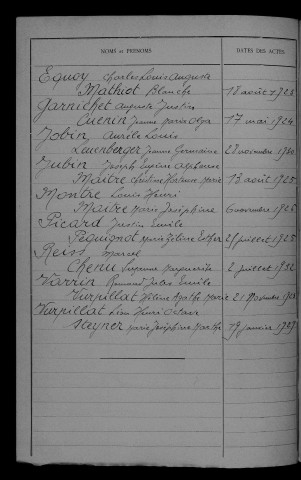 NOMS ET PRÉNOMS DATES DES ACTES
Equoy Charles Louis Auguste
Mathiot Blanche 18 août 1928
Garnichet Auguste Justin
Cuenin Jeanne Marie Olga 17 mai 1924
Jobin Aurèle Louis
Leuenberger Jeanne Germaine 28 novembre
Jubin Joseph
Maitre Christine Hortense Marie 13 août 1925
Montre Louis Henri
Maitre Marie Joséphine 6 novembre 1926
Picard Justin Emile
Pequignot Marie Esther juillet 1925
Reiss Marcel
Chenu Suzanne Marguerite 2 juillet 1932
Varrin Jules Emile
Vurpillat Hélène Agathe Marie 21 Novembre
Vurpillat Léon Henri
Meyner Marie Joséphine Marthe 19 janvier 1929